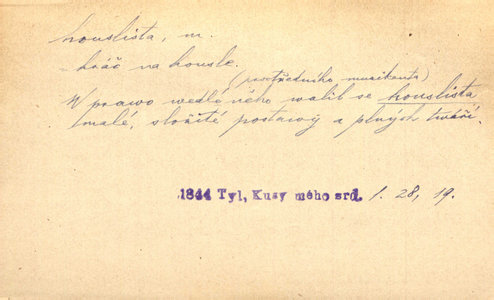 houslista, m.
- hráč na housle.
(prostředního muzikanta)
W prawo wedlé něho walil se houslista
malé, složité postawy a plných twáří.
1844 Tyl, Kusy mého srd. 1. 28, 19.